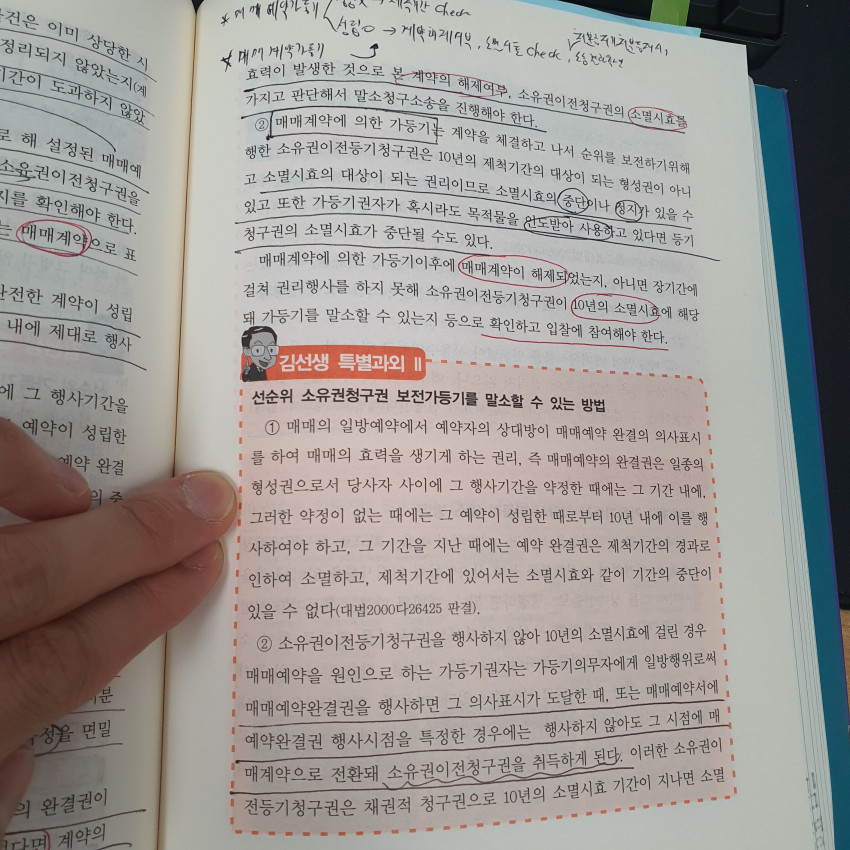 건은 이미 상당한 시
정리되지 않았는지(계
기간이 도과하지 않았
로 해 설정된 매매예
소유권이전청구권을
지를 확인해야 한다.
는 매매계약으로 표
완전한 계약이 성립
내에 제대로 행사
에 그 행사기간을
예약이 성립한
예약 완결
의 중
정을 면밀
의 완결권이
계약의
매매예약가등기
check
성립 → 계약해제여부, 소멸시효 check,
매매계약가등기
효력이 발생한 것으로 본 계약의 해제여부, 소유권이전청구권의 소멸시효를
가지고 판단해서 말소청구소송을 진행해야 한다.
② 매매계약에 의한 가등기는 계약을 체결하고 나서 순위를 보전하기위해
행한 소유권이전등기청구권은 10년의 제척기간의 대상이 되는 형성권이 아니
고 소멸시효의 대상이 되는 권리이므로 소멸시효의 중단이나 정지가 있을 수
있고 또한 가등기권자가 혹시라도 목적물을 인도받아 사용하고 있다면 등기
청구권의 소멸시효가 중단될 수도 있다.
매매계약에 의한 가등기이후에 매매계약이 해제되었는지, 아니면 장기간에
걸쳐 권리행사를 하지 못해 소유권이전등기청구권이 10년의 소멸시효에 해당
돼 가등기를 말소할 수 있는지 등으로 확인하고 입찰에 참여해야 한다.
김선생 특별과외 II
선순위 소유권청구권 보전가등기를 말소할 수 있는 방법
① 매매의 일방예약에서 예약자의 상대방이 매매예약 완결의 의사표시
를 하여 매매의 효력을 생기게 하는 권리, 즉 매매예약의 완결권은 일종의
형성권으로서 당사자 사이에 그 행사기간을 약정한 때에는 그 기간 내에,
그러한 약정이 없는 때에는 그 예약이 성립한 때로부터 10년 내에 이를 행
사하여야 하고, 그 기간을 지난 때에는 예약 완결권은 제척기간의 경과로
인하여 소멸하고, 제척기간에 있어서는 소멸시효와 같이 기간의 중단이
있을 수 없다(대법2000다26425 판결).
② 소유권이전등기청구권을 행사하지 않아 10년의 소멸시효에 걸린 경우
매매예약을 원인으로 하는 가등기권자는 가등기의무자에게 일방행위로써
매매예약완결권을 행사하면 그 의사표시가 도달한 때, 또는 매매예약서에
예약완결권 행사시점을 특정한 경우에는 행사하지 않아도 그 시점에 매
매계약으로 전환돼 소유권이전청구권을 취득하게 된다. 이러한 소유권이
전등기청구권은 채권적 청구권으로 10년의 소멸시효 기간이 지나면 소멸